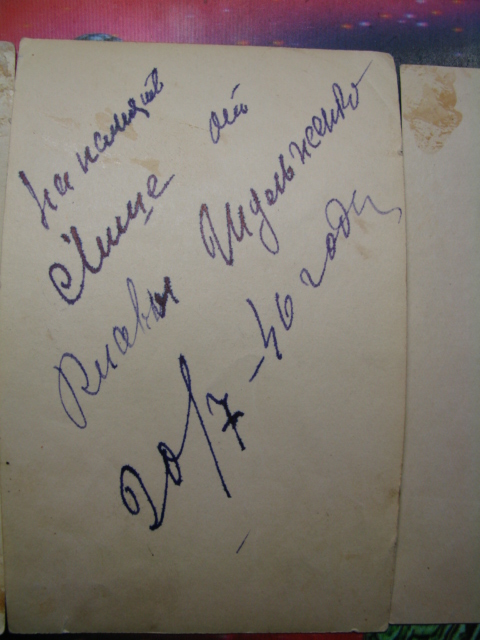 на память
Мише от
Клавы
20/7-46 года